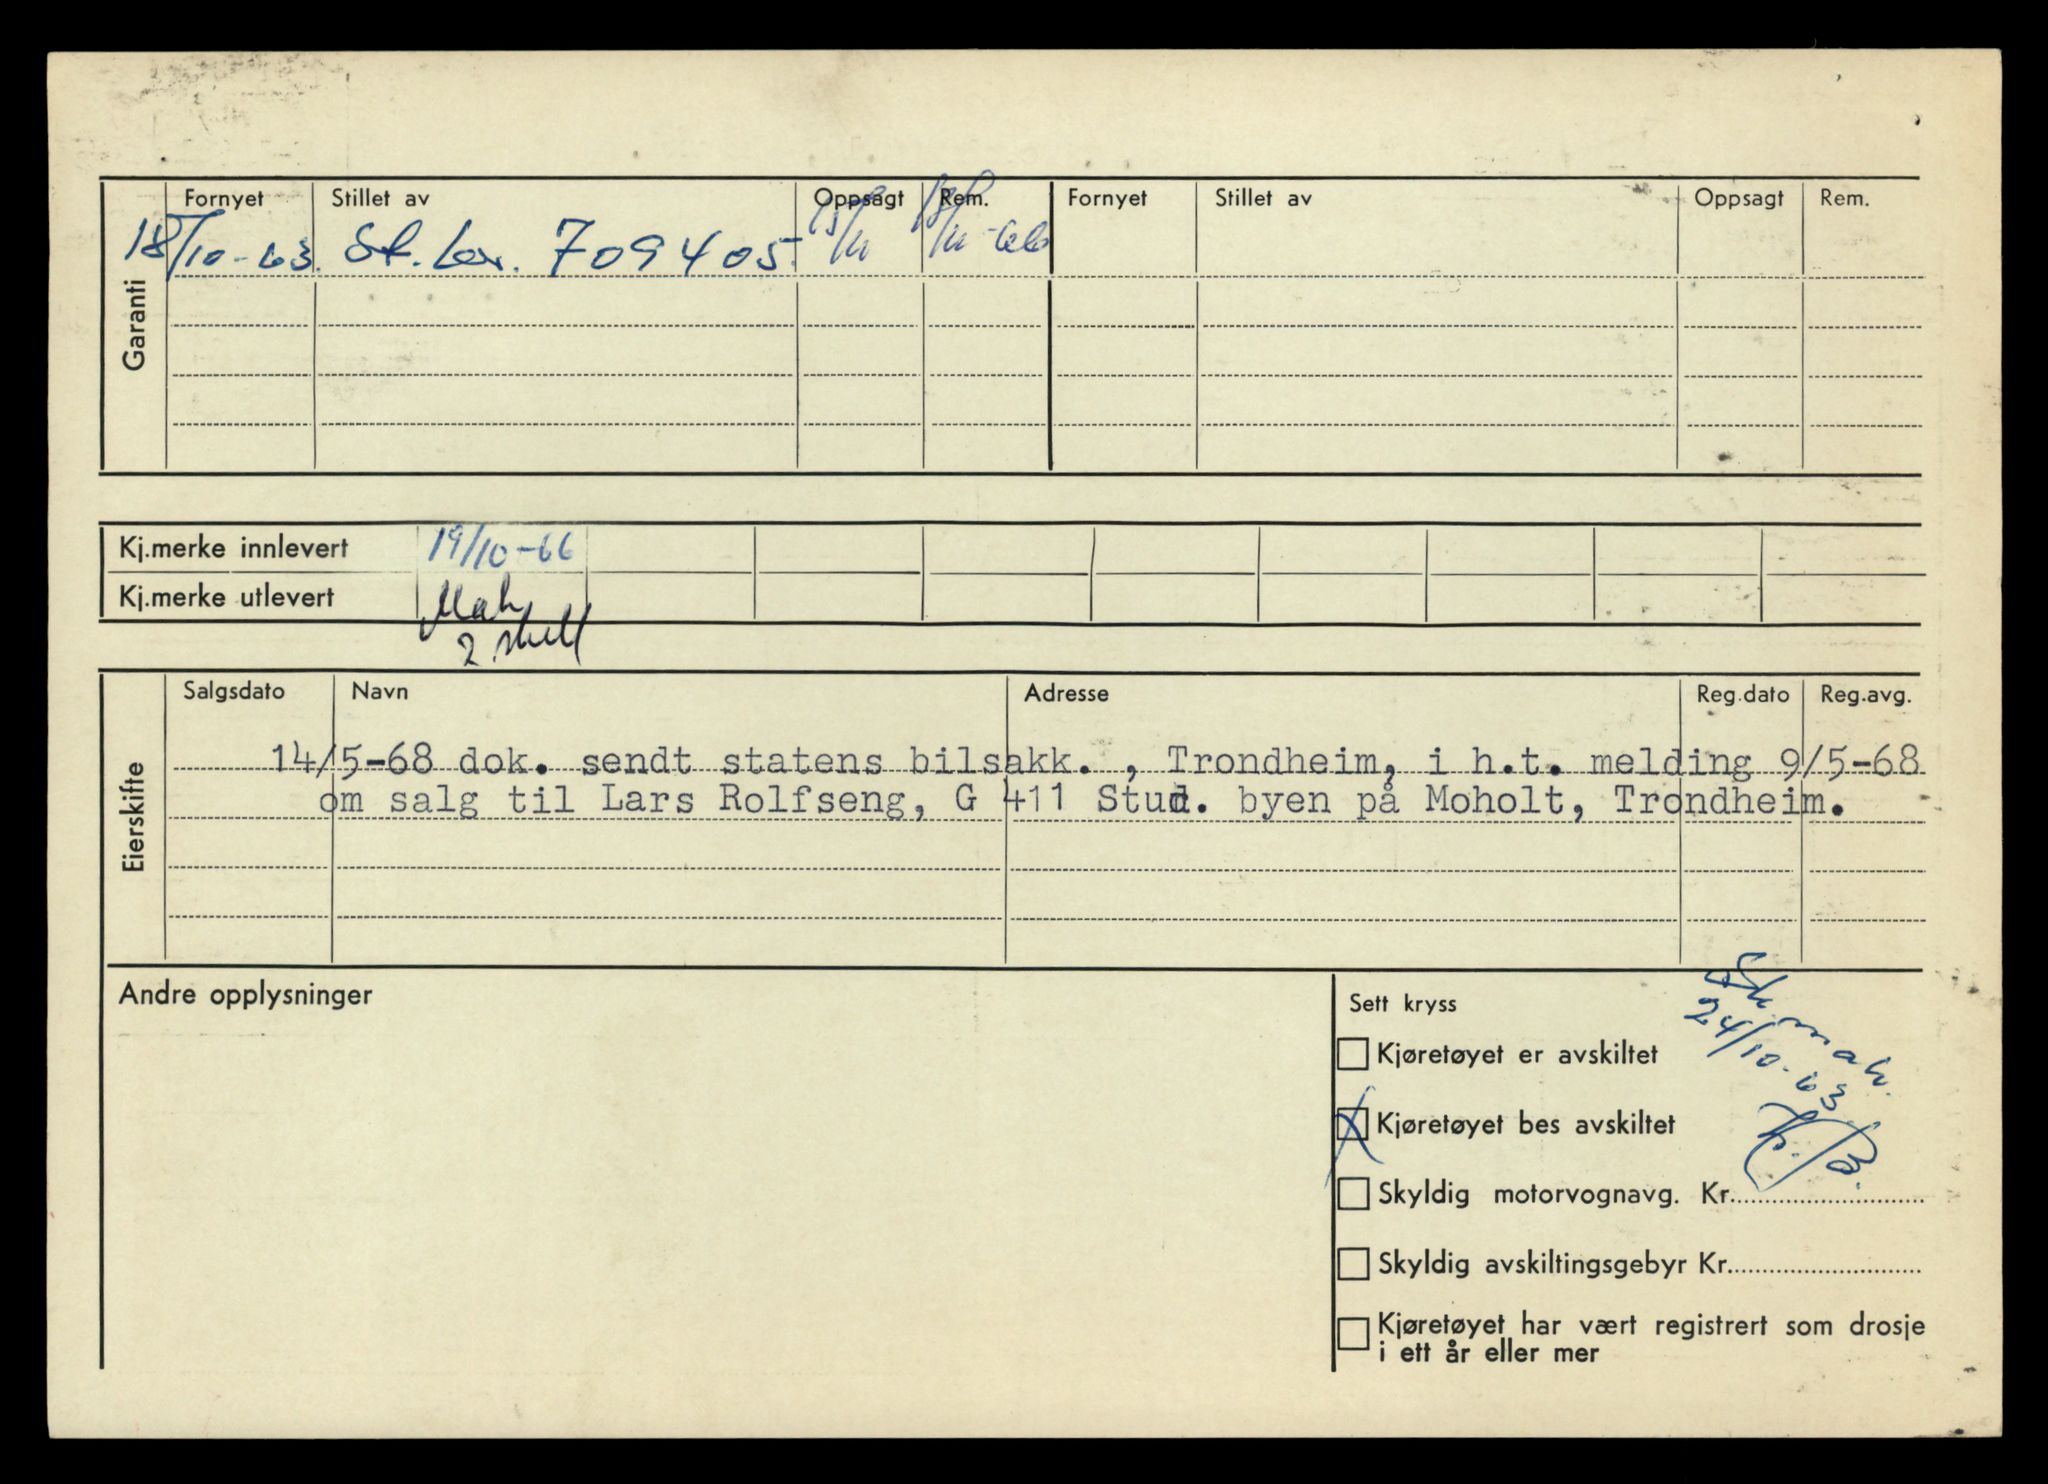 Fornyet Stillet av Oppsagt Rem. Fornyet Stillet av Oppsagt Rem.
18/10-63. 709405
Garanti
Kj.merke innlevert 19/10-66
Kj.merke utlevert Mah
2 skilt
Salgsdato Navn Adresse Reg.dato Reg.avg.
14/5-68 dok. sendt statens bilsakk. , Trondheim, i h.t. melding 9/5-68
om salg til Lars Rolfseng, G 411 Stud. byen på Moholt, Trondheim.
Eierskifte
Andre opplysninger
Sett kryss
Kjøretøyet er avskiltet
24/10-63.
Kjøretøyet bes avskiltet
Skyldig motorvognavg. Kr.
Skyldig avskiltingsgebyr Kr.
Kjøretøyet har vært registrert som drosje
i ett år eller mer